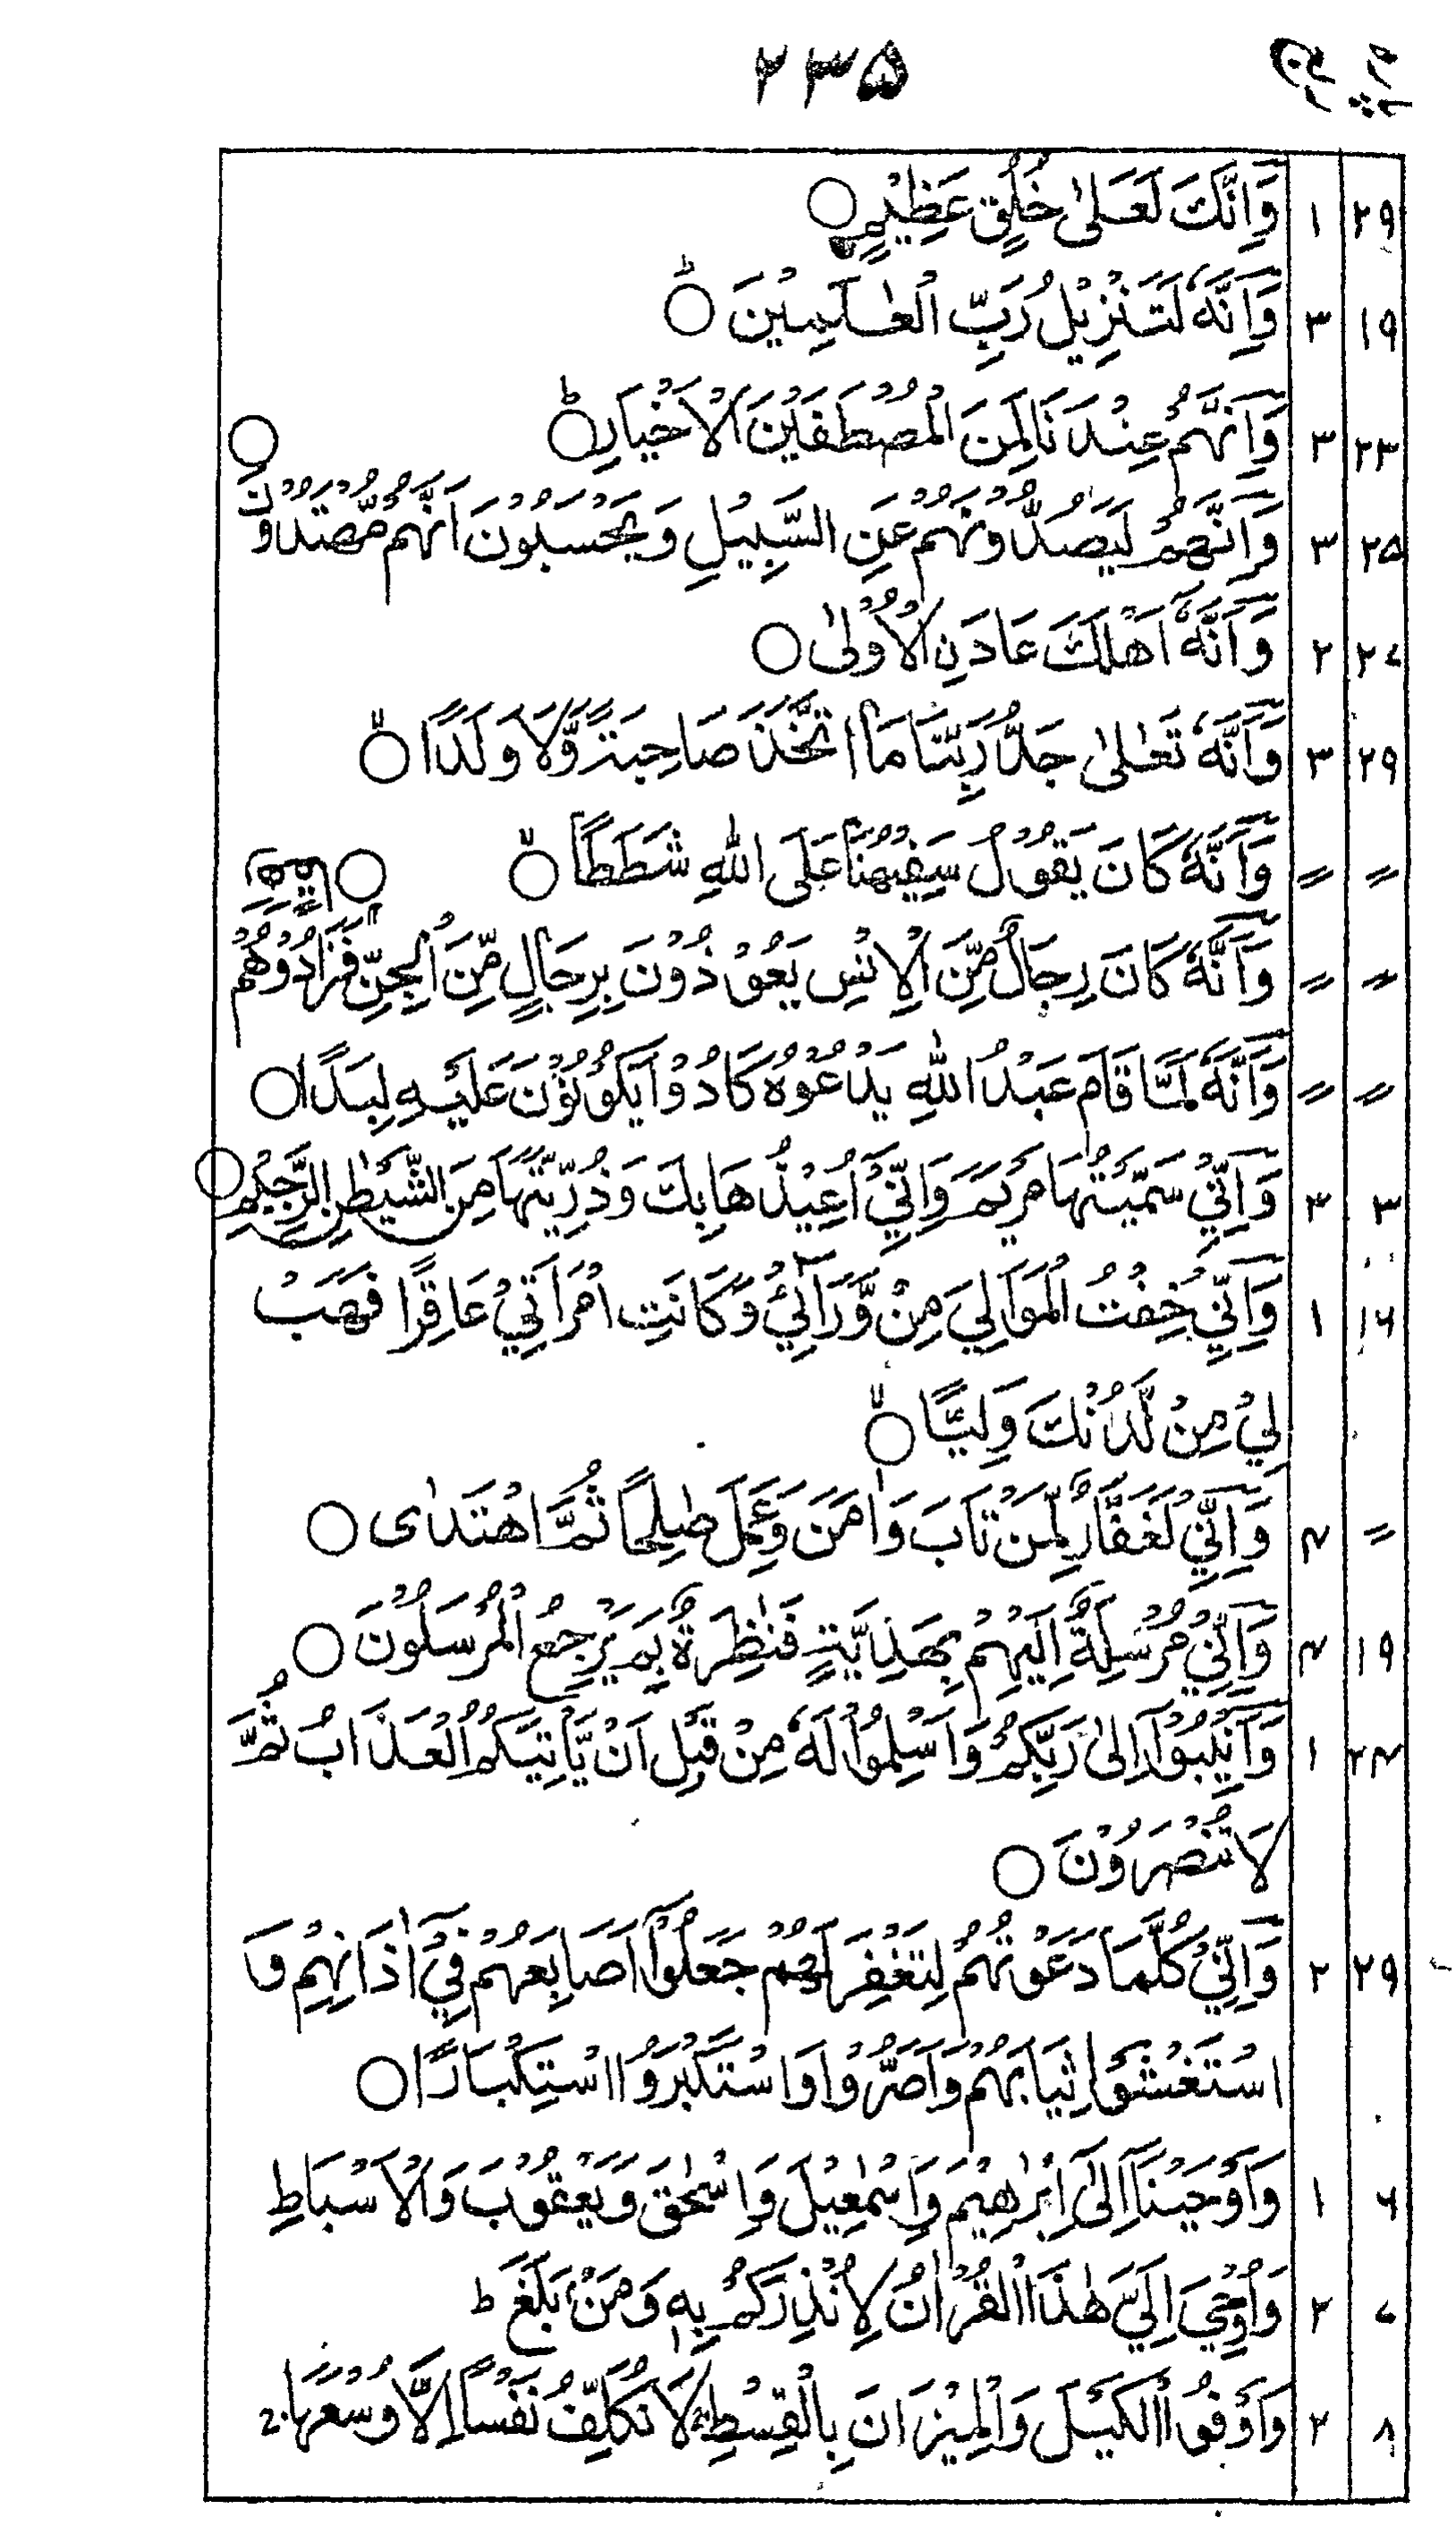 پارہ رکوع ۲۳۵
۲۹ ۱ وَاِنَّكَ لَعَلٰى خُلُقٍ عَظِيْمٍ ○
۱۹ ۳ وَاِنَّهٗ لَتَنْزِيْلُ رَبِّ الْعٰلَمِيْنَ ○ ط
۲۳ ۳ وَاِنَّهُمْ عِنْدَنَا لَمِنَ الْمُصْطَفَيْنَ الْاَخْيَارِ ○ ط
۲۵ ۳ وَاِنَّهُمْ لَيَصُدُّوْنَهُمْ عَنِ السَّبِيْلِ وَيَحْسَبُوْنَ اَنَّهُمْ مُّهْتَدُوْنَ ○
۲۷ ۲ وَاَنَّهٗٓ اَهْلَكَ عَادَنِ الْاُوْلٰى ○
۲۹ ۳ وَاَنَّهٗ تَعٰلٰى جَدُّ رَبِّنَا مَا اتَّخَذَ صَاحِبَةً وَّلَا وَلَدًا ○ لا
〃 〃 وَاَنَّهٗ كَانَ يَقُوْلُ سَفِيْهُنَا عَلَى اللّٰهِ شَطَطًا ○ لا
〃 〃 وَاَنَّهٗ كَانَ رِجَالٌ مِّنَ الْاِنْسِ يَعُوْذُوْنَ بِرِجَالٍ مِّنَ الْجِنِّ فَزَادُوْهُمْ رَهَقًا ○ لا
〃 〃 وَاَنَّهٗ لَمَّا قَامَ عَبْدُ اللّٰهِ يَدْعُوْهُ كَادُوْا يَكُوْنُوْنَ عَلَيْهِ لِبَدًا ○
۳ ۳ وَاِنِّيْ سَمَّيْتُهَا مَرْيَمَ وَاِنِّيْٓ اُعِيْذُهَا بِكَ وَذُرِّيَّتَهَا مِنَ الشَّيْطٰنِ الرَّجِيْمِ ○
۱۶ ۱ وَاِنِّيْ خِفْتُ الْمَوَالِيَ مِنْ وَّرَآئِيْ وَكَانَتِ امْرَاَتِيْ عَاقِرًا فَهَبْ
لِيْ مِنْ لَّدُنْكَ وَلِيًّا ○ لا
〃 ۴ وَاِنِّيْ لَغَفَّارٌ لِّمَنْ تَابَ وَاٰمَنَ وَعَمِلَ صٰلِحًا ثُمَّ اهْتَدٰى ○
۱۹ ۴ وَاِنِّيْ مُرْسِلَةٌ اِلَيْهِمْ بِهَدِيَّةٍ فَنٰظِرَةٌۢ بِمَ يَرْجِعُ الْمُرْسَلُوْنَ ○
۲۴ ۱ وَاَنِيْبُوْٓا اِلٰى رَبِّكُمْ وَاَسْلِمُوْا لَهٗ مِنْ قَبْلِ اَنْ يَّاْتِيَكُمُ الْعَذَابُ ثُمَّ
لَا تُنْصَرُوْنَ ○
۲۹ ۲ وَاِنِّيْ كُلَّمَا دَعَوْتُهُمْ لِتَغْفِرَ لَهُمْ جَعَلُوْٓا اَصَابِعَهُمْ فِيْٓ اٰذَانِهِمْ وَ
اسْتَغْشَوْا ثِيَابَهُمْ وَاَصَرُّوْا وَاسْتَكْبَرُوا اسْتِكْبَارًا ○
۶ ۱ وَاَوْحَيْنَآ اِلٰٓى اِبْرٰهِيْمَ وَاِسْمٰعِيْلَ وَاِسْحٰقَ وَيَعْقُوْبَ وَالْاَسْبَاطِ
۷ ۲ وَاُوْحِيَ اِلَيَّ هٰذَا الْقُرْاٰنُ لِاُنْذِرَكُمْ بِهٖ وَمَنْۢ بَلَغَ ط
۸ ۲ وَاَوْفُوا الْكَيْلَ وَالْمِيْزَانَ بِالْقِسْطِ لَا نُكَلِّفُ نَفْسًا اِلَّا وُسْعَهَا